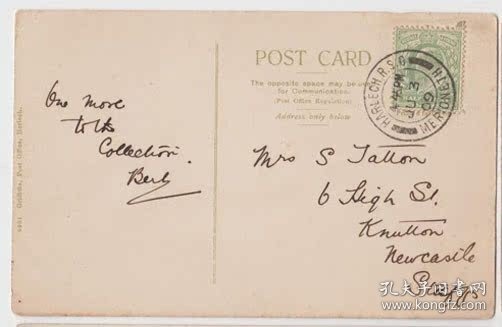 POST CARD
The opposite space may be used
for Communication.
(Post Office Regulation)
Address only below
HARLECH.R.S.O
MERIONETH
JU 3
09
One more
to the
Collection.
Bert
Mrs S Tatton
6 High St.
Knutton
Newcastle
Staffs
Griffiths, Post Office, Harlech.
孔夫子旧书网
www.kongfz.com